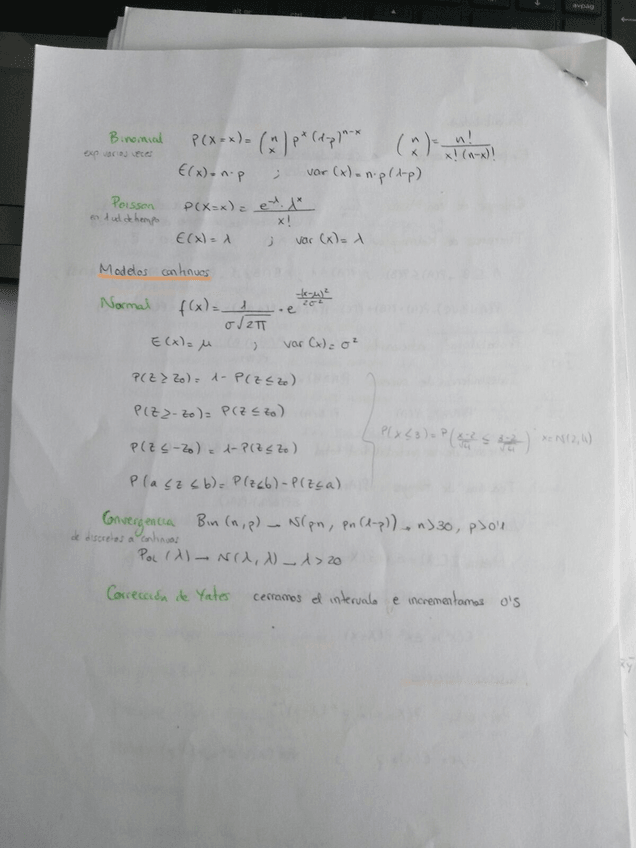 Binomial P(X=x) = (n x) p^x (1-p)^n-x (n x) = n! / x! (n-x)!
exp varias veces
E(x) = n·p ; var (x) = n·p (1-p)
Poisson P(X=x) = e^-λ · λ^x / x!
en 1 ud de tiempo
E(x) = λ ; var (x) = λ
Modelos continuos
Normal f(x) = 1 / σ√2π · e^-(x-μ)²/2σ²
E(x) = μ ; var (x) = σ²
P(Z ≥ Z0) = 1- P(Z ≤ Z0)
P(Z ≥ -Z0) = P(Z ≤ Z0)
P(X ≤ 3) = P( ≤ ) X≈N(2,4)
P(Z ≤ -Z0) = 1-P(Z ≤ Z0)
P(a ≤ Z ≤ b) = P(Z ≤ b) - P(Z ≤ a)
Convergencia Bin (n,p) → N(pn, pn(1-p)) → n>30, p>0'1
de discretas a continuas
Poi (λ) → N(λ, λ) → λ > 20
Corrección de Yates cerramos el intervalo e incrementamos 0'5